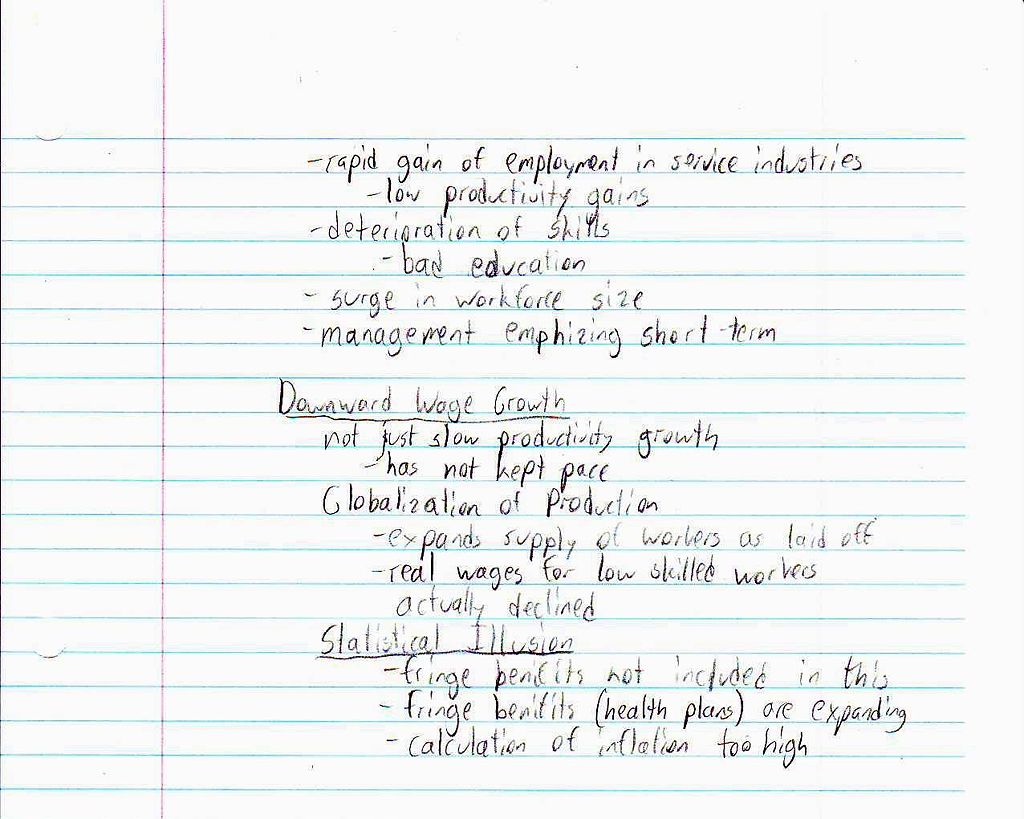 -rapid gain of employment in service industries
-low productivity gains
-deterioration of skills
-bad education
- surge in workforce size
-management emphizing short-term
Downward Wage Growth
not just slow productivity growth
-has not kept pace
Globalization of Production
-expands supply of workers as laid off
-real wages for low skilled workers
actually declined
Statistical Illusion
-fringe benifits not included in this
- fringe benifits (health plans) are expanding
- calculation of inflation too high